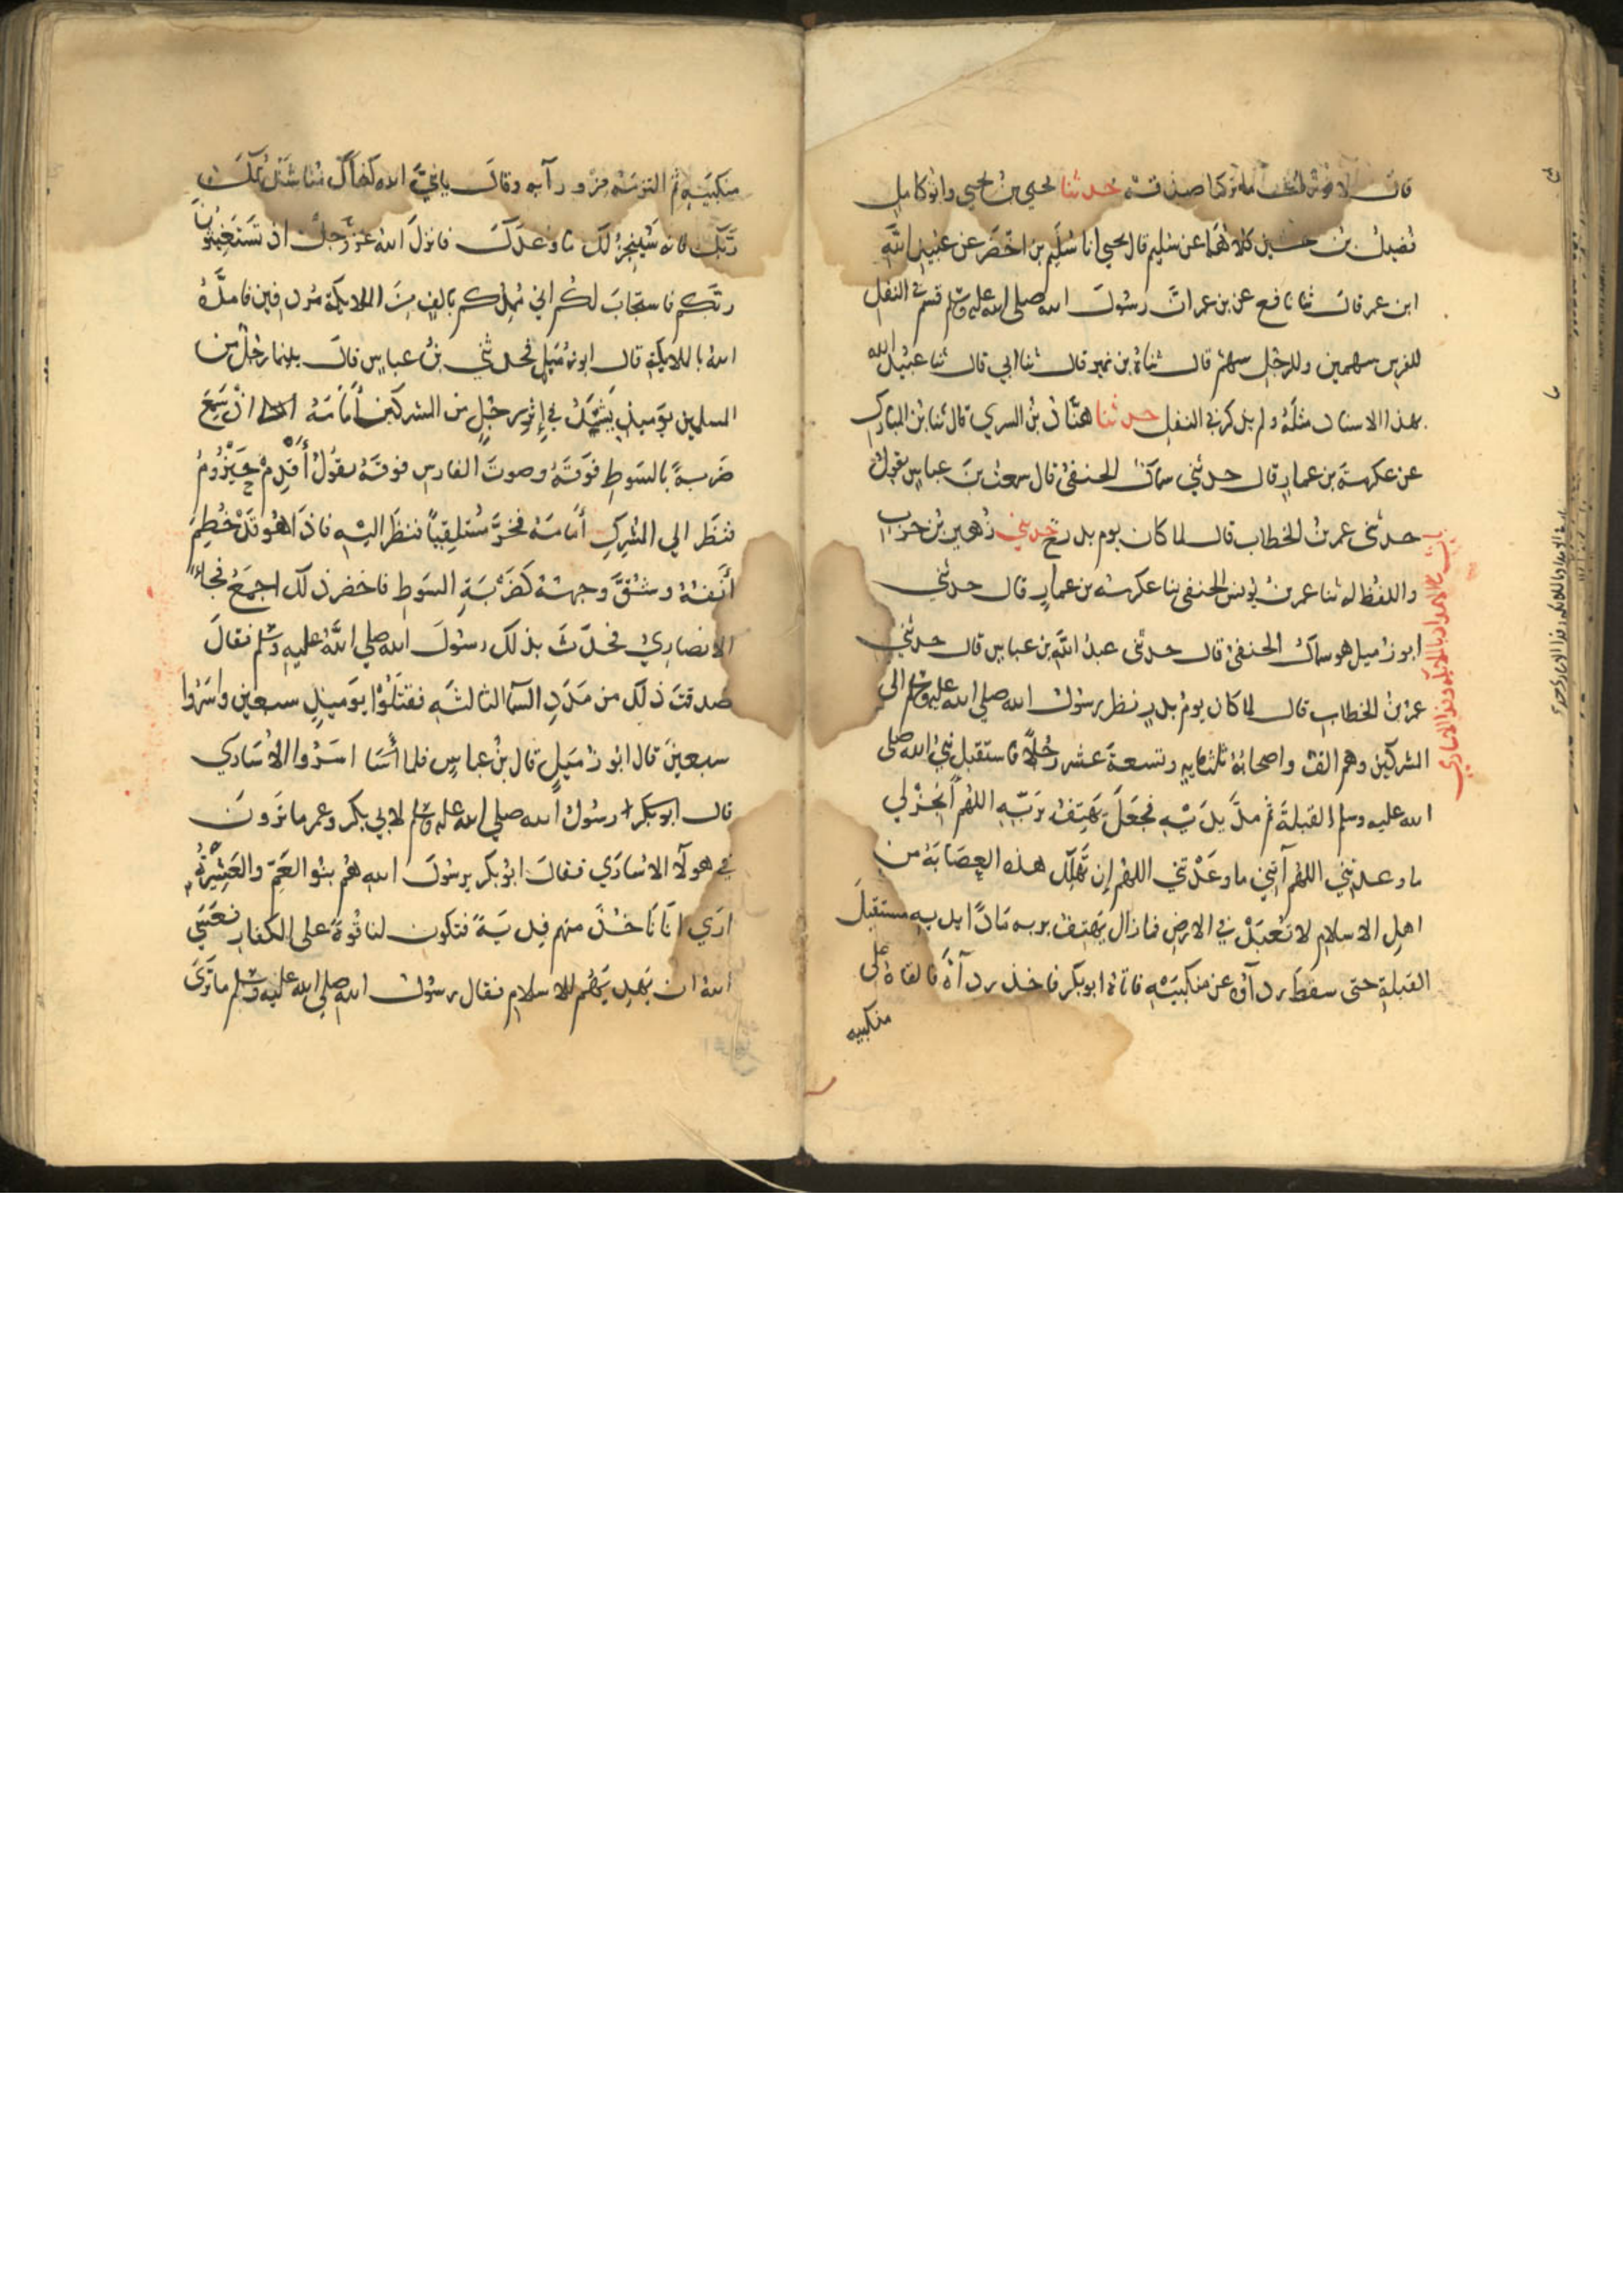 قال لا نورث ما تركنا صدقة حدثنا يحيى بن يحيى وابو كامل
فضيل بن حسين كلاهما عن سليم قال يحيى انا سُلَيم بن اخضَر عن عبيد الله
ابن عمر قال ثنا نافع عن بن عمر انَّ رسُولَ الله صلى الله عليه وسلم قسم في النفل
للفرس سهمين وللرجل سهم قال ثناه بن نمير قال ثنا ابي قال ثنا عبيد الله
بهذا الاسناد مثلَهُ ولم يذكر في النفل حدثنا هنَّاد بنُ السري قال ثنا بن المبارك
عن عكرمة بن عمار قال حدثني سماك الحنفيُّ قال سمعت بنَ عباس يقول
حدثني عمر بنُ الخطاب قال لما كان يوم بدر ح وحدثني زُهير بن حرب
واللفظ له ثنا عمر بنُ يُونس الحنفي ثنا عكرمة بن عمار قال حدثني
ابو زُميل هو سماك الحنفيُّ قال حدثني عبدُ اللَّهِ بن عباس قال حدثني
عمر بن الخطاب قال لما كان يومُ بدر نظر رسُولُ الله صلى الله عليه وسلم الى
المشركين وهم الف واصحابُهُ ثلثمايه وتسعةَ عشر رجُلًا فاستقبل نبيُّ الله صلى
الله عليه وسلم القبلةَ ثم مدَّ يدَيْهِ فجَعَلَ يَهتِفُ برَبّهِ اللهُم اَنجزْ لي
ما وعدتني اللهُم آتِني ما وعَدْتَني اللهُم اِن تَهْلِك هذه العِصَابَةُ من
اهلِ الاسلام لا تُعبَدْ في الارض فما زال يَهتِفُ بربه مَادًّا يديه مستقبلَ
القبلةِ حتى سقَطَ ردآؤه عن منكبيَهِ فاتاهُ ابو بكر فاخذ ردآهُ فالقاهُ على
منكبيه
منكبيَهِ ثم التزمَهُ من ورآيه وقالَ يا نبيَّ الله كفاك مُناشَدَتُكَ
رَبَّكَ فانه سَيُنجِزُ لكَ ما وعدَكَ فانزلَ اللهُ عزَّ وجلَّ اذ تَستَغِيثونَ
ربَّكم فاستجَابَ لكُم اني مُمِدُّكم بالفٍ مِنَ الملايكة مُردِفين فامدَّهُ
اللهُ بالملايكةِ قال ابو زُمَيلٍ فحدثني بنُ عباس قالَ بينما رجُلٌ من
المسلمين يوَميذٍ يَشتَدُّ في اِثرِ رجُلٍ من المشركين أَمَامَهُ اذْ سَمِعَ
ضَربةً بالسَوطِ فَوقَهُ وصوتَ الفارس فوقَهُ يقُولُ أَقدِم حَيْزُومُ
فنَظَر الي المُشرِكِ أَمَامَهُ فخرَّ مُستلقِيًا فنظَرَ اليْهِ فاذَا هُو قَدْ خُطِمَ
أنفُهُ وشُقَّ وجهُهُ كضَرْبَةِ السَوطِ فاخضر ذلك اجمَعُ فجاءَ
الانصاريُّ فحَدَّثَ بذلك رسُولَ الله صلي اللَّهُ عليهِ وسلم فقالَ
صدقتَ ذلك من مَدَدِ السَمآ الثالثَهِ فقتَلُوا يوَميذٍ سبعين واسَرُوا
سبعينَ قال ابو زُمَيلٍ قال بنُ عباسٍ فلما أسَرُوا الاُسَاري
قال رسُولُ الله صلي الله عليه وسلم لابي بكر وعمر ما ترَونَ
في هولآ الاُسَاري فقالَ ابُو بكر يرسُولَ الله هُم بنُوا العَمِّ والعَشِيْرةُ
ارَي ان تَاخُذَ منهم فِديَةً فتكون لنا قُوةً على الكفار فعَسَي
اللهُ ان يَهدِيَهُم للاسلام فقال رسُول الله صلي الله عليه وسلم ما تَرَى